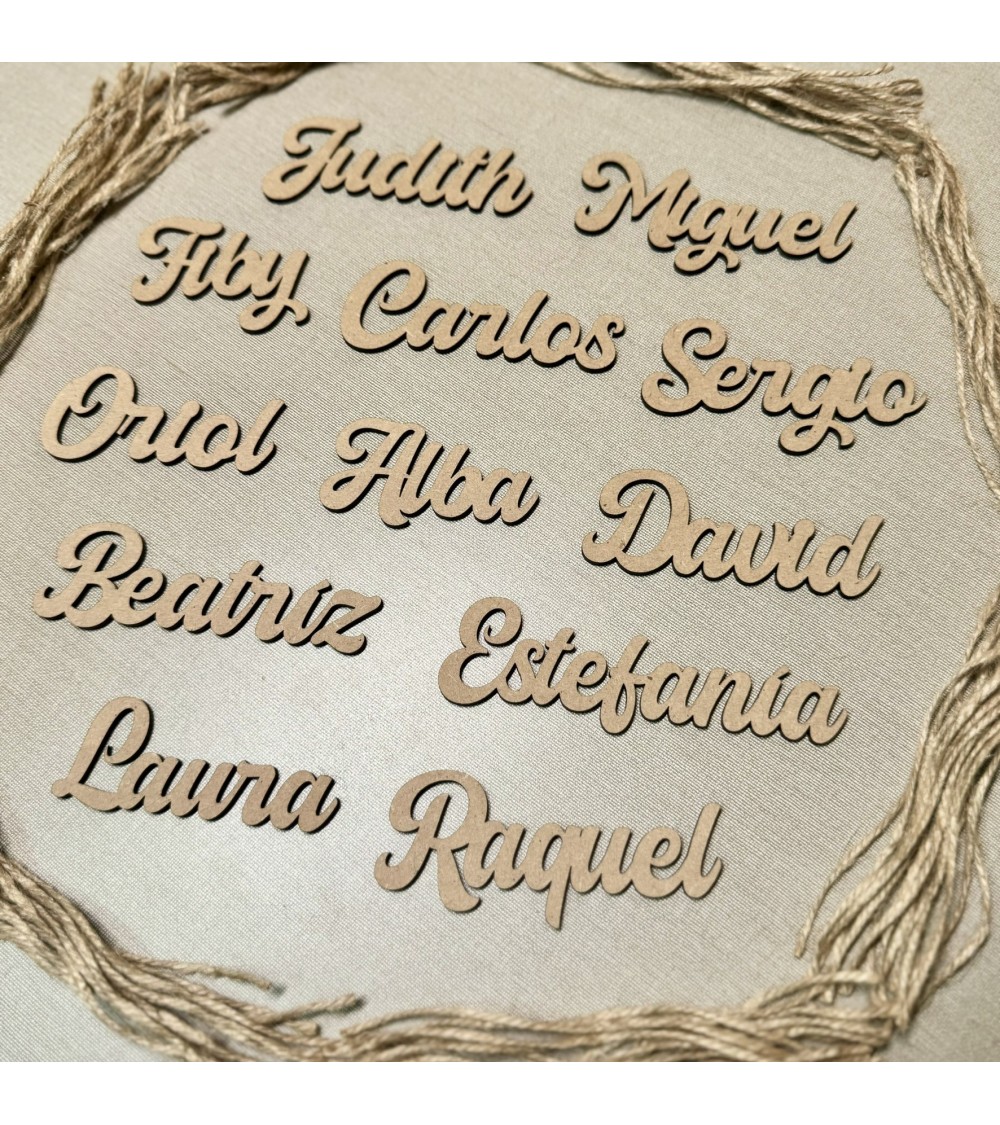 Judith Miguel
Fiby Carlos Sergio
Oriol Alba David
Beatríz Estefanía
Laura Raquel